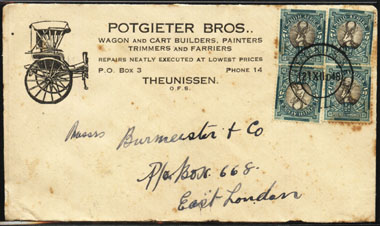 POTGIETER BROS..
WAGON AND CART BUILDERS, PAINTERS
TRIMMERS AND FARRIERS
REPAIRS NEATLY EXECUTED AT LOWEST PRICES
P.O. BOX 3 PHONE 14
THEUNISSEN.
O.F.S.
Messrs Burmeister & Co
P/o Box 668.
East London